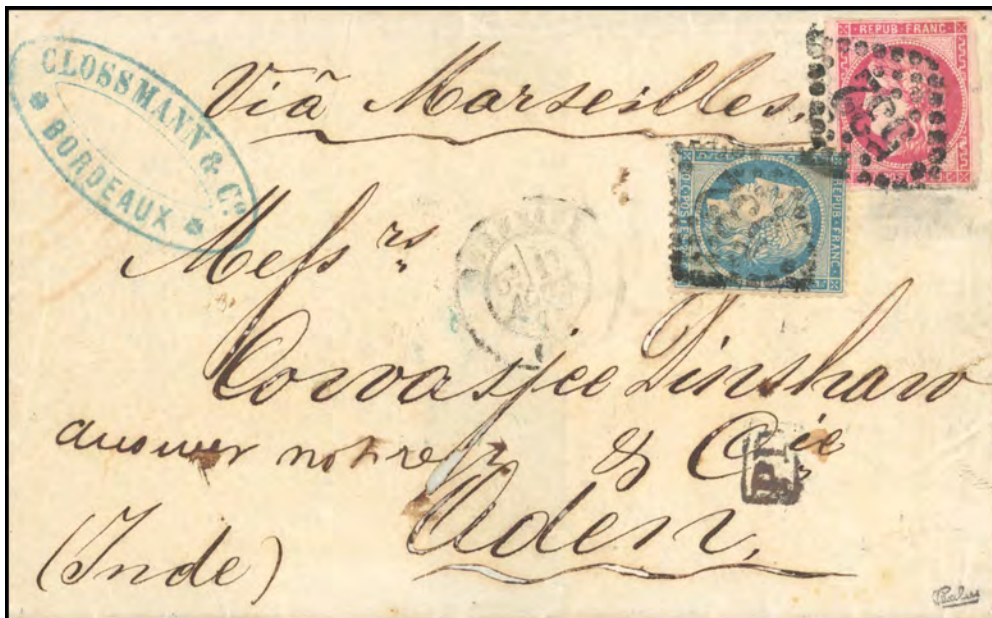 CLOSSMANN & Co.
BORDEAUX
REPUB FRANC
Viâ Marseilles,
REPUB FRANC
Messrs
Cowasjee Dinshaw
answer & Cie
PD
Aden,
(Inde)